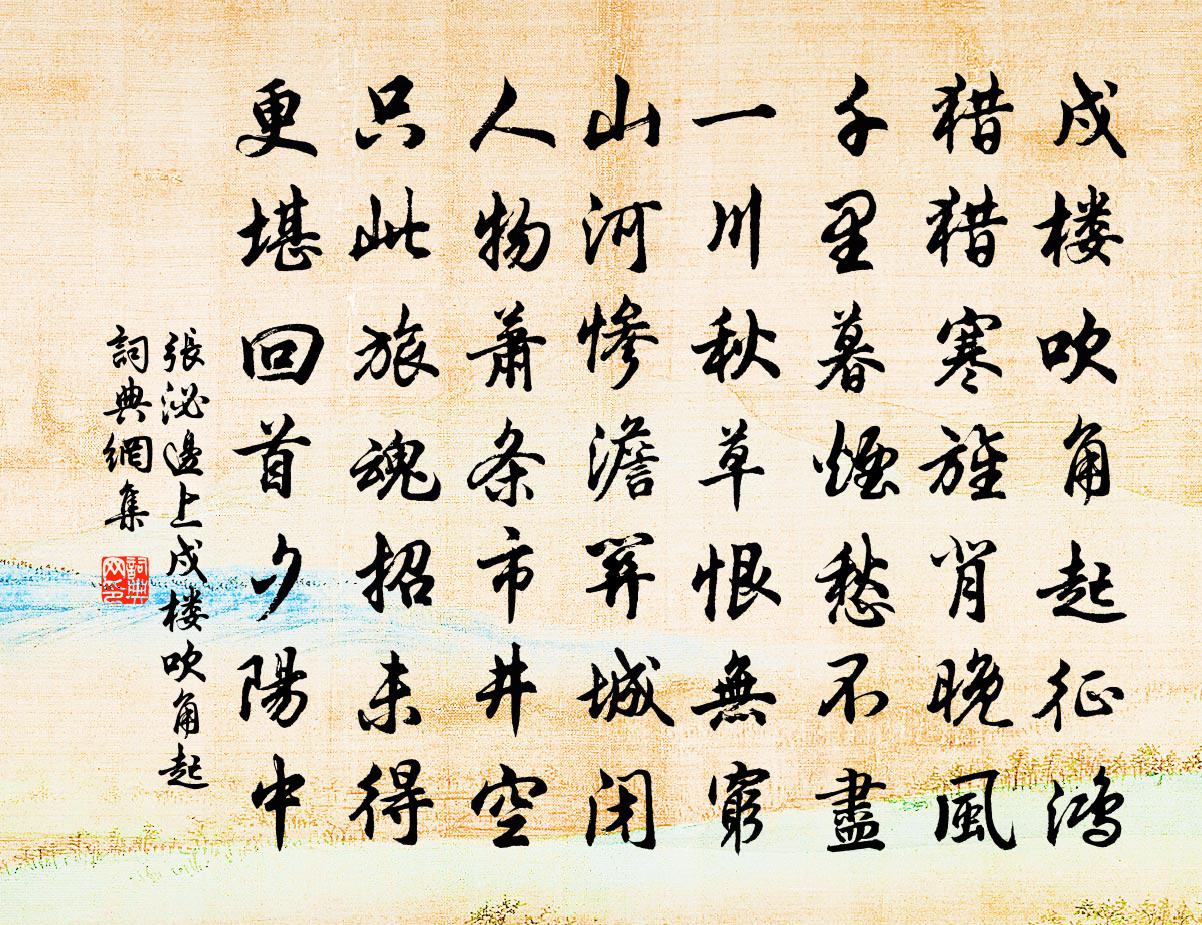 戍楼吹角起征鸿
猎猎寒旌背晚風
千里暮煙愁不盡
一川秋草恨無窮
山河惨澹關城闭
人物蕭条市井空
只此旅魂招未得
更堪回首夕陽中
張泌邊上戍楼吹角起
詞典網集